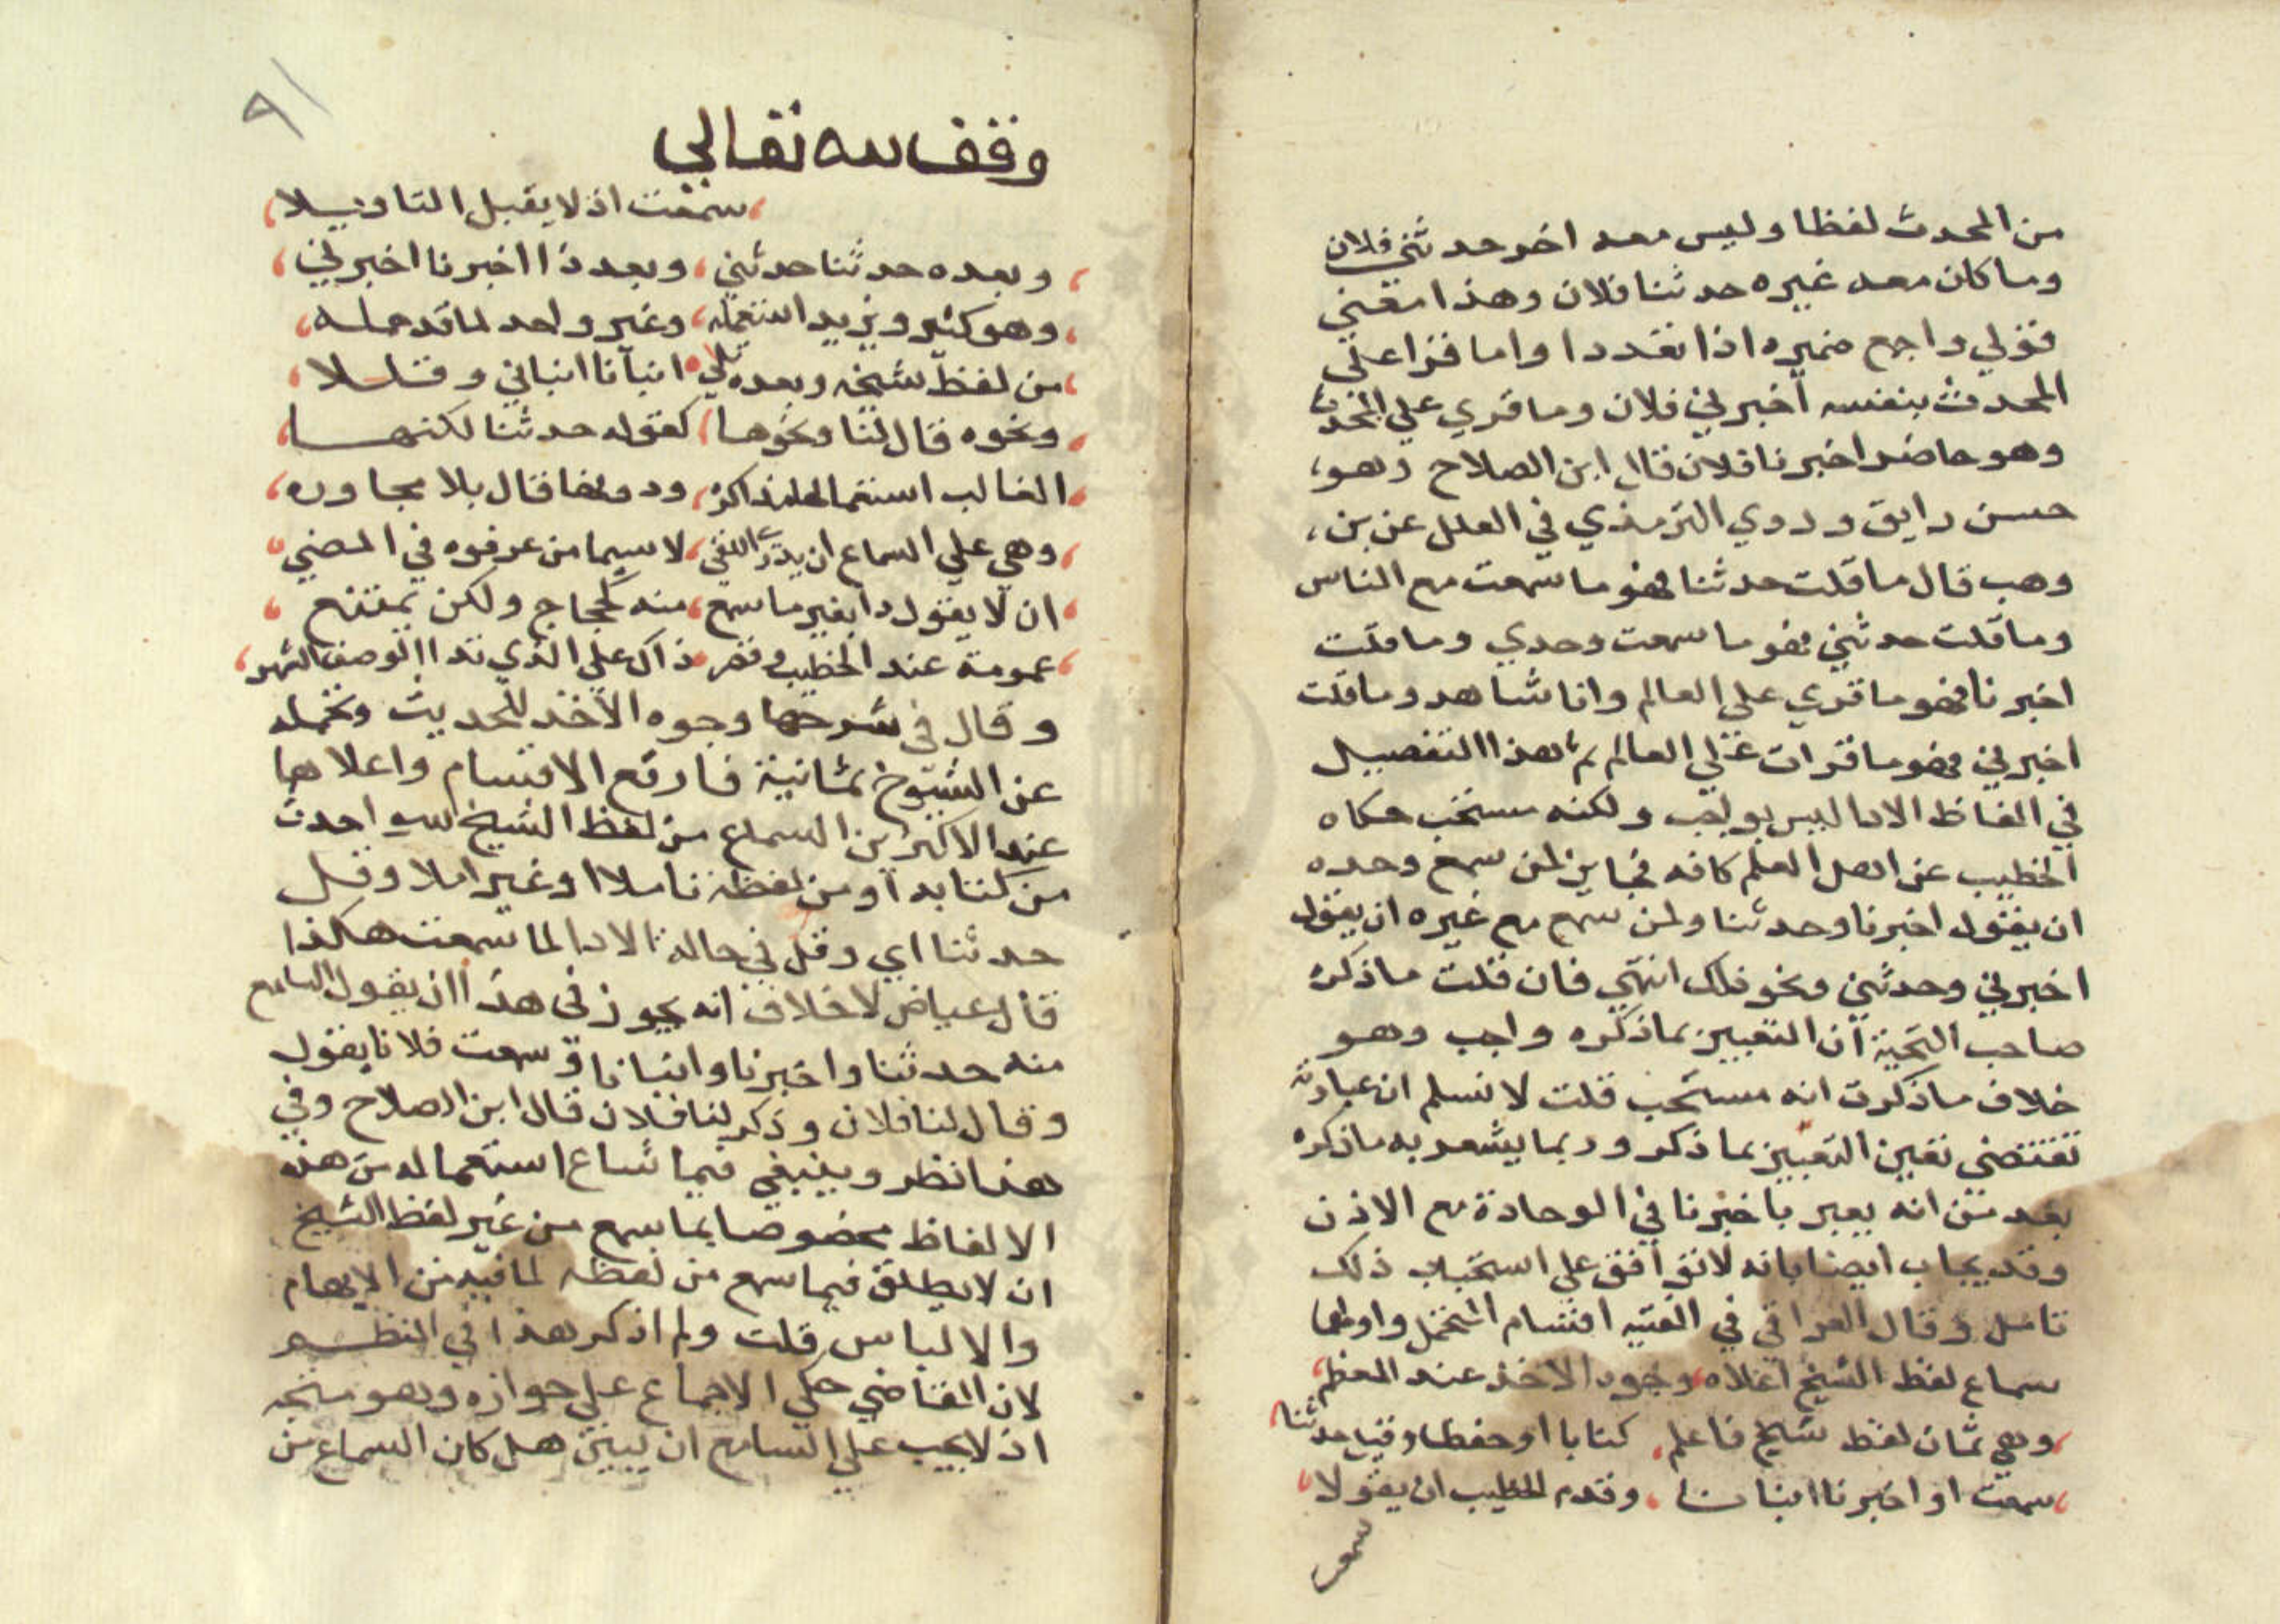 من المحدث لفظا وليس معه اخر حدثني فلان
وما كان معه غيره حدثنا فلان وهذا معني
قولي راجع ضميره اذا تعددا واما قرا علي
المحدث بنفسه اخبرني فلان وما قري علي المحدث
وهو حاضر اخبرنا فلان قال ابن الصلاح وهو
حسن رايق وروي الترمذي في العلل عن بن
وهب قال ما قلت حدثنا فهو ما سمعت مع الناس
وما قلت حدثني فهو ما سمعت وحدي وما قلت
اخبرنا فهو ما قري علي العالم وانا شاهد وما قلت
اخبرني فهو ما قرات علي العالم ثم هذا التفصيل
في الفاظ الادا ليس بواجب ولكنه مستحب حكاه
الخطيب عن اهل العلم كافه فجايز لمن سمع وحده
ان يقول اخبرنا وحدثنا ولمن سمع مع غيره ان يقول
اخبرني وحدثني ونحو ذلك انتهي فان قلت ما ذكره
صاحب ان التعبير بما ذكره واجب وهو
خلاف ما ذكرت انه مستحب قلت لا نسلم ان عبارته
تقتضي تعين التعبير بما ذكر وربما يشعر به ما ذكره
بعد من انه يعبر باخبرنا في الوحادة مع الاذن
وقد يجاب ايضا بانه علي استحباب ذلك
تامل وقال العراقي في الفيته اقسام التحمل واولها
سماع لفظ الشيخ اعلاه وجوه الاخذ عند المعظم
وهي ثمان لفظ شيخ فاعلم كتابا او حفظا وقل حدثنا
سمعت او اخبرنا انبانا وقدم الخطيب ان يقولا
سمعت
٩١
وقف لله تعالي
سمعت اذ لا يقبل التاويلا
وبعده حدثنا حدثني وبعد ذا اخبرنا اخبرني
وهو كثير ويزيد استعمله وغير واحد لما قد حمله
من لفظ شيخه وبعده تلي انبانا انباني وقللا
ونحوه قال لنا ونحوها كقوله حدثنا لكنها
الغالب استعمالها مذاكره ودونها قال بلا مجاوره
وهي علي السماع ان يدر اللقي لا سيما من عرفوه في المضي
ان لا يقول ذا بغير ما سمع منه كحجاج ولكن يمتنع
عمومه عند الخطيب وقصر ذاك علي الذي بذا الوصف اشتهر
وقال في شرحها وجوه الاخذ للحديث وتحمله
عن الشيوخ ثمانية فارفع الاقسام واعلاها
عند الاكثرين السماع من لفظ الشيخ سوا حدث
من كتابه او من لفظه باملا او غير املا وقل
حدثنا اي وقل في حالة الادا لما سمعت هكذا
قال عياض لا خلاف انه يجوز في هذا ان يقول السامع
منه حدثنا واخبرنا وانبانا وسمعت فلانا يقول
وقال لنا فلان وذكر لنا فلان قال ابن الصلاح وفي
هذا نظر وينبغي فيما شاع استعماله من هذه
الالفاظ مخصوصا بما سمع من غير لفظ الشيخ
ان لا يطلق فيما سمع من لفظه لما فيه من الايهام
والالباس قلت ولم اذكر هذا في النظم
لان القاضي حكي الاجماع علي جوازه وهو متجه
اذ لا يجب علي السامع ان يبين هل كان السماع من